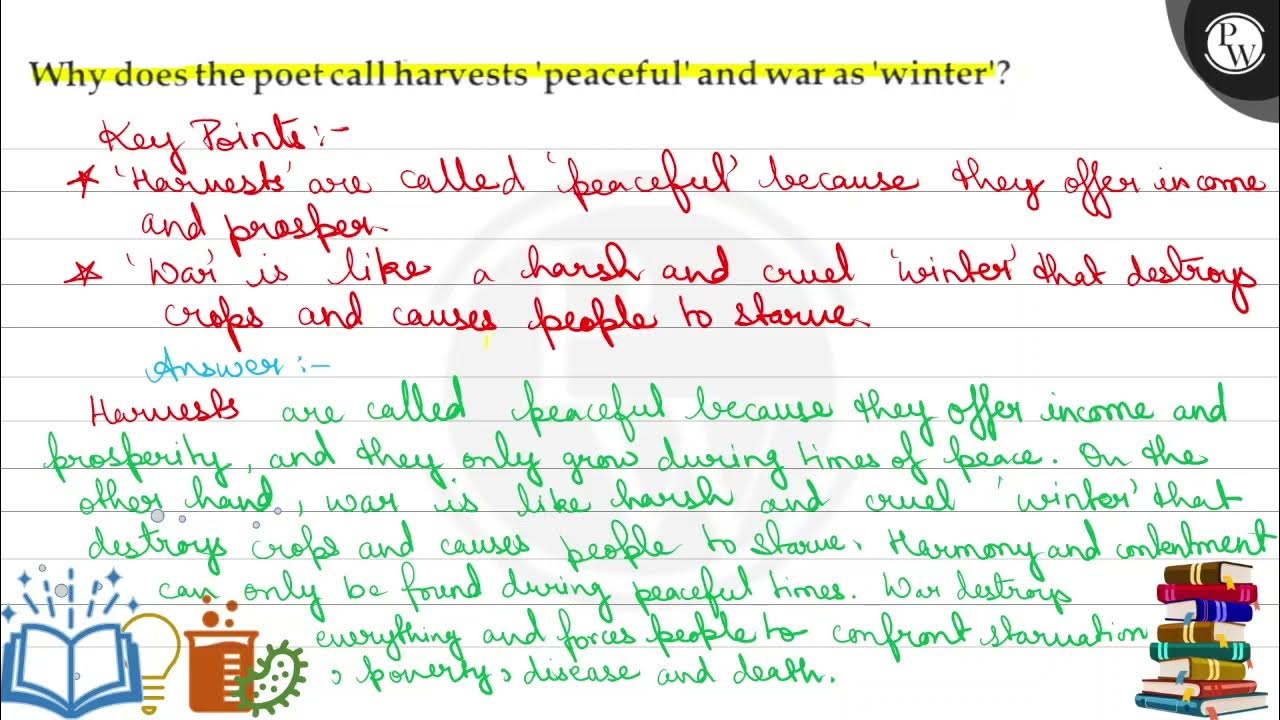 PW
Why does the poet call harvests 'peaceful' and war as 'winter'?
Key Points:-
* 'Harvests' are called 'peaceful' because they offer income
and prosper.
* 'War' is like a harsh and cruel 'winter' that destroys
crops and causes people to starve.
Answer:-
Harvests are called peaceful because they offer income and
prosperity, and they only grow during times of peace. On the
other hand, war is like harsh and cruel 'winter' that
destroys crops and causes people to starve. Harmony and contentment
can only be found during peaceful times. War destroys
everything and forces people to confront starvation
, poverty, disease and death.